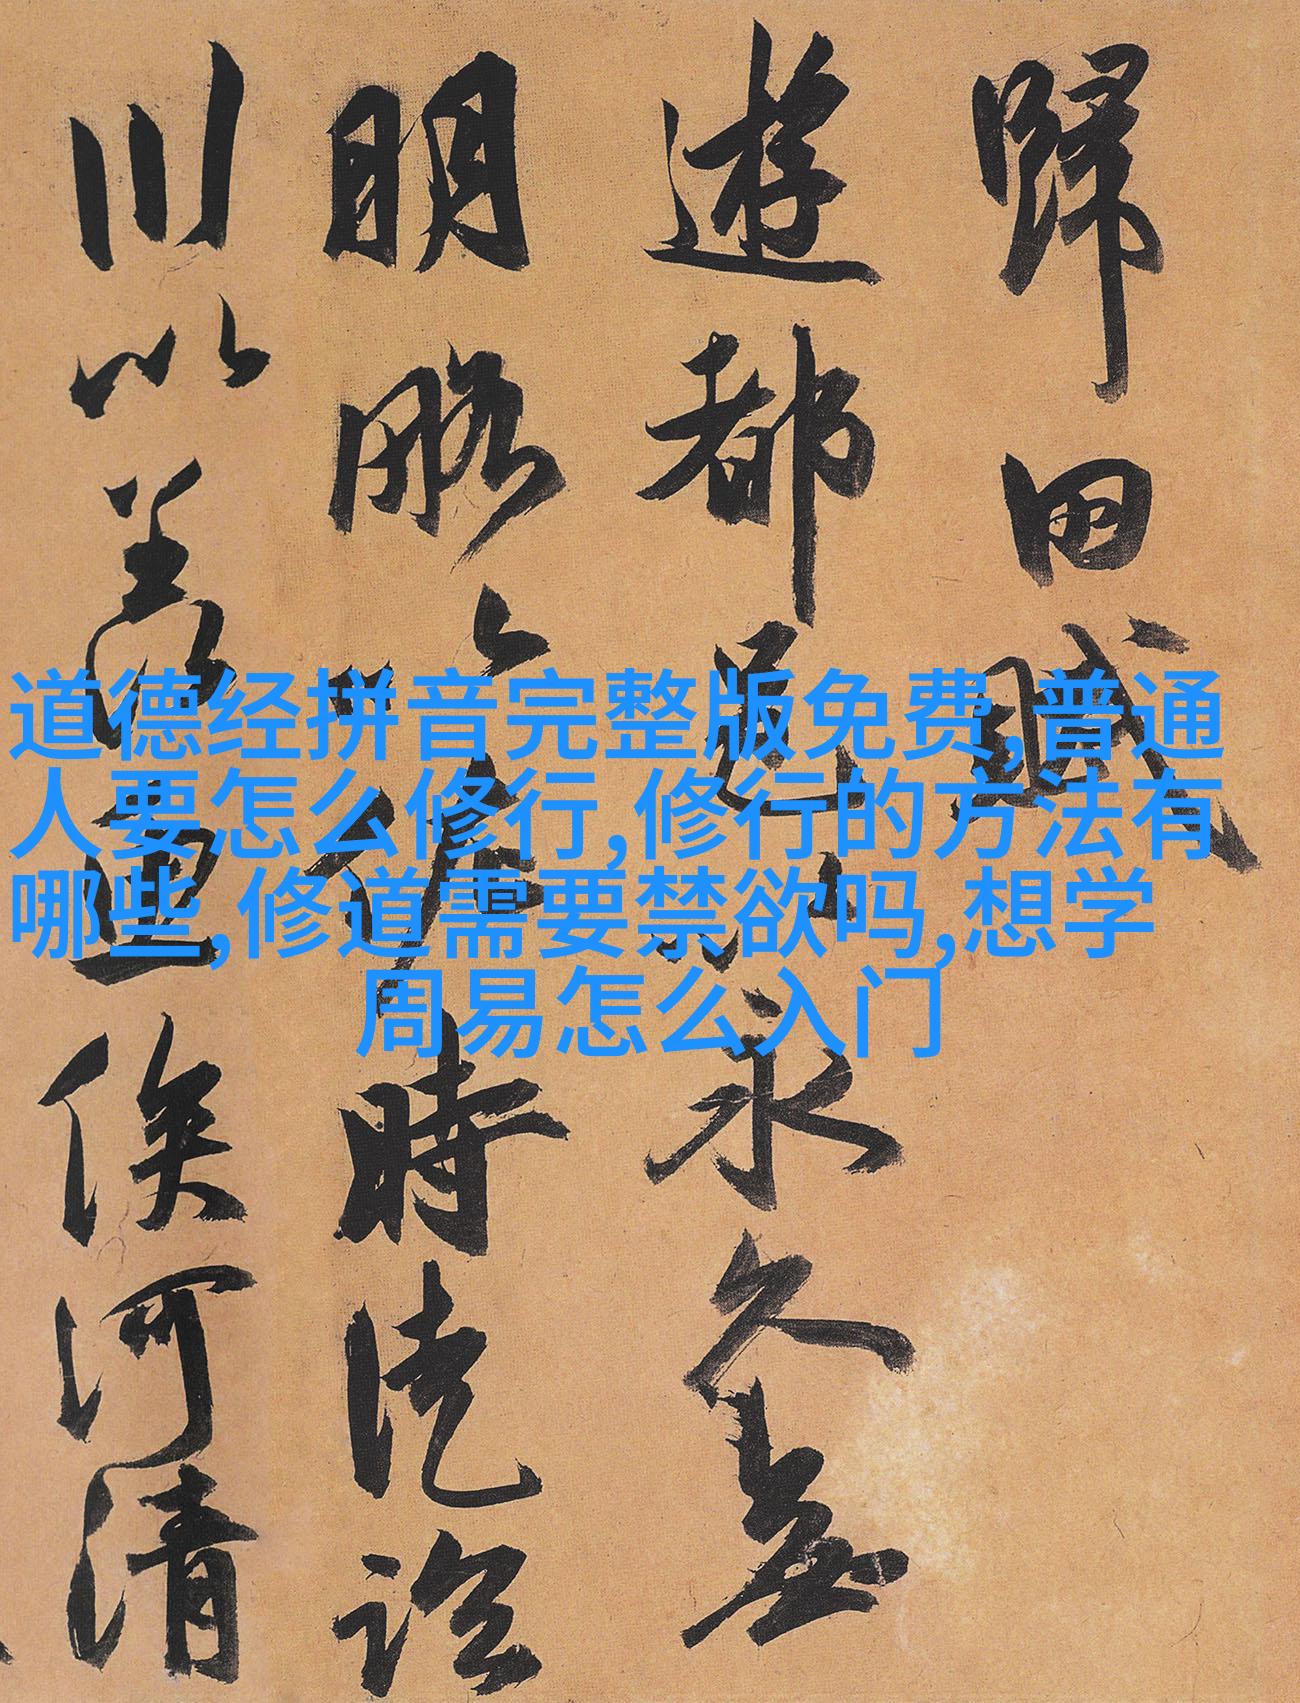 歸田賦
遊都邑以永久無
明略以佐時徒臨
川以羨魚俟河清
道德经拼音完整版免费,普通
人要怎么修行,修行的方法有
哪些,修道需要禁欲吗,想学
周易怎么入门